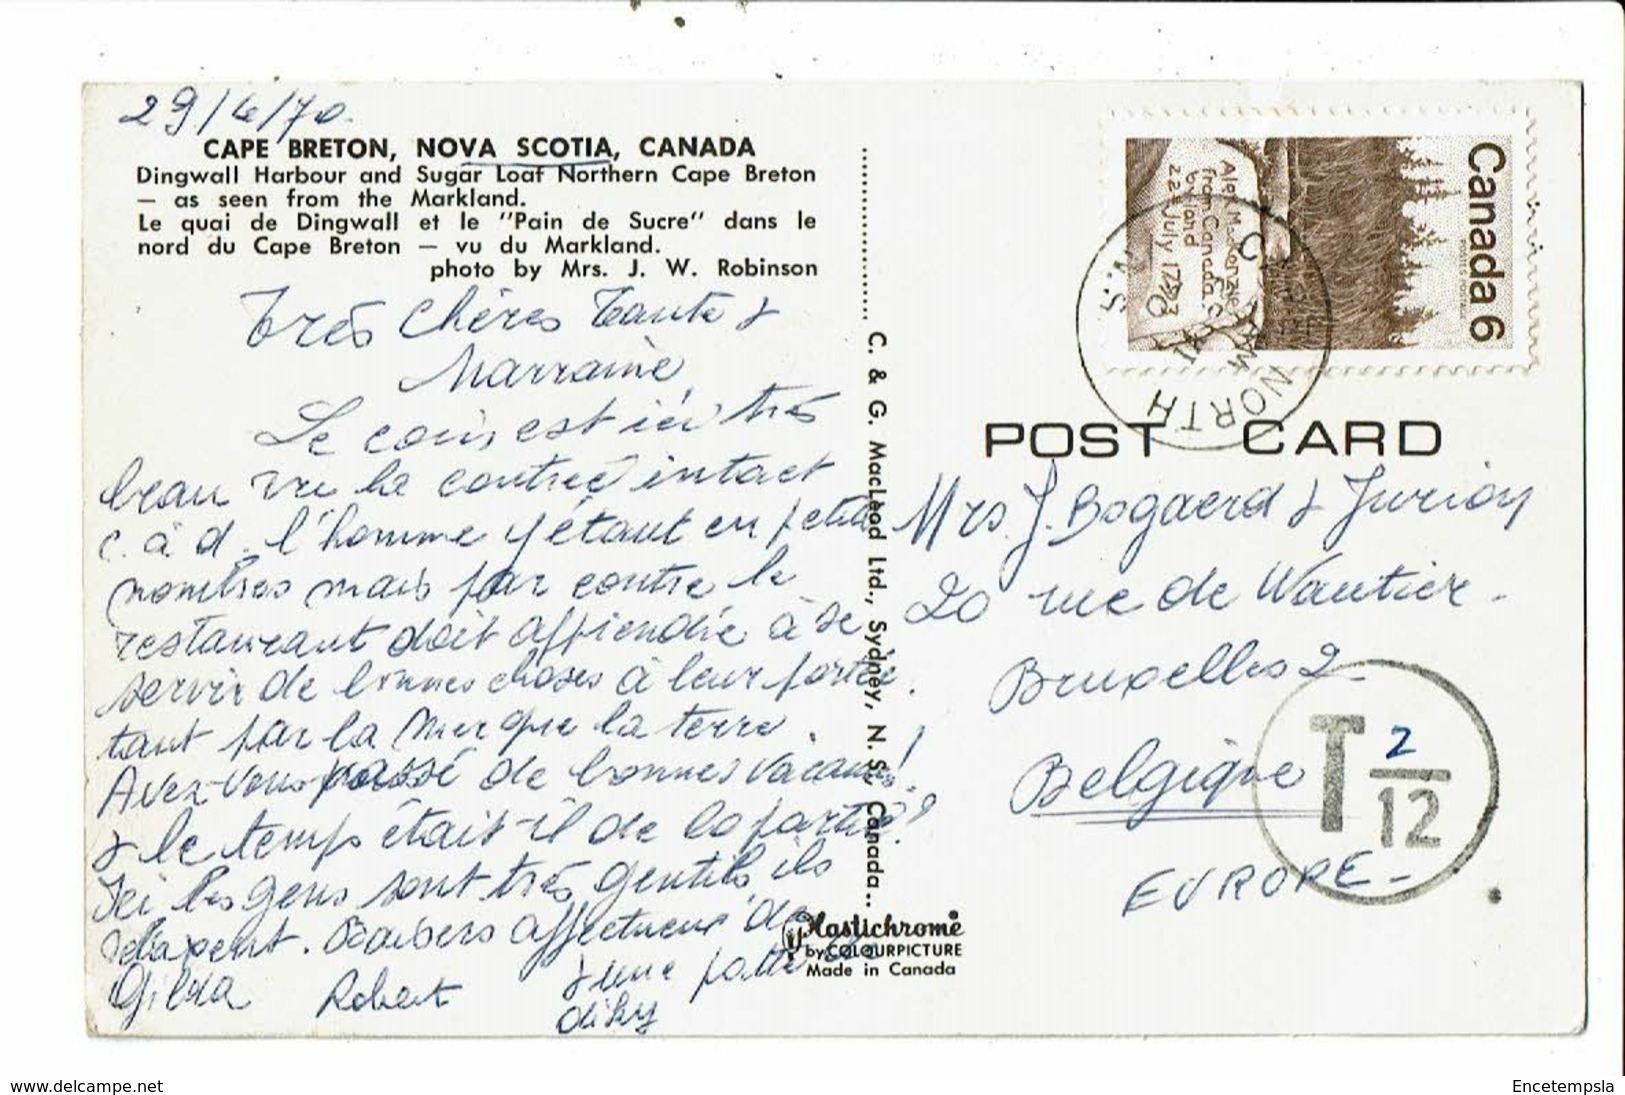 29/6/70.
CAPE BRETON, NOVA SCOTIA, CANADA
Dingwall Harbour and Sugar Loaf Northern Cape Breton
— as seen from the Markland.
Le quai de Dingwall et le "Pain de Sucre" dans le
nord du Cape Breton — vu du Markland.
photo by Mrs. J. W. Robinson
Très Chères Tante &
Marraine
Le coin est ici très
beau vu la contrée intact
c.à d. l'homme y étant en petits
nombres mais par contre le
restaurant doit à se
servir de bonnes choses à leur portée.
tant par la mer que la terre.
Avez-vous passé de bonnes vacances!
& le temps était-il de la partie?
Ici les gens sont très gentils ils
Baisers affectueux de
Gilda Robert & une patte de
diky
C. & G. MacLeod Ltd., Sydney, N. S., Canada
Plastichrome
by COLOURPICTURE
Made in Canada
Canada 6
POSTES POSTAGE
Alex MacKenzie
from Canada
by land
22d July 1793
NORTH
N.S.
POST CARD
Mrs J. Bogaerd & Jurion
20 rue de Wautier.
Bruxelles 2
Belgique
EUROPE-
T 2/12
www.delcampe.net
Encetempsla